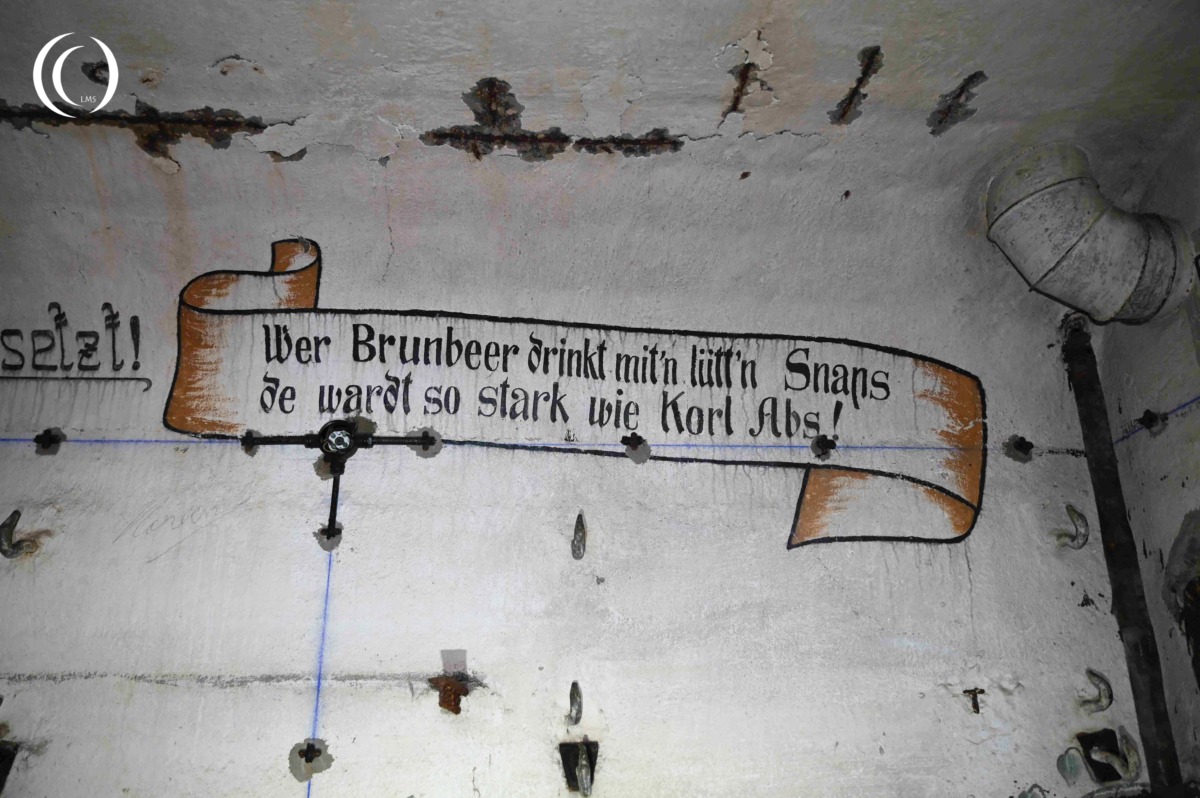 LMS
setzt!
Wer Brunbeer drinkt mit'n lütt'n Snaps
de wardt so stark wie Korl Abs!